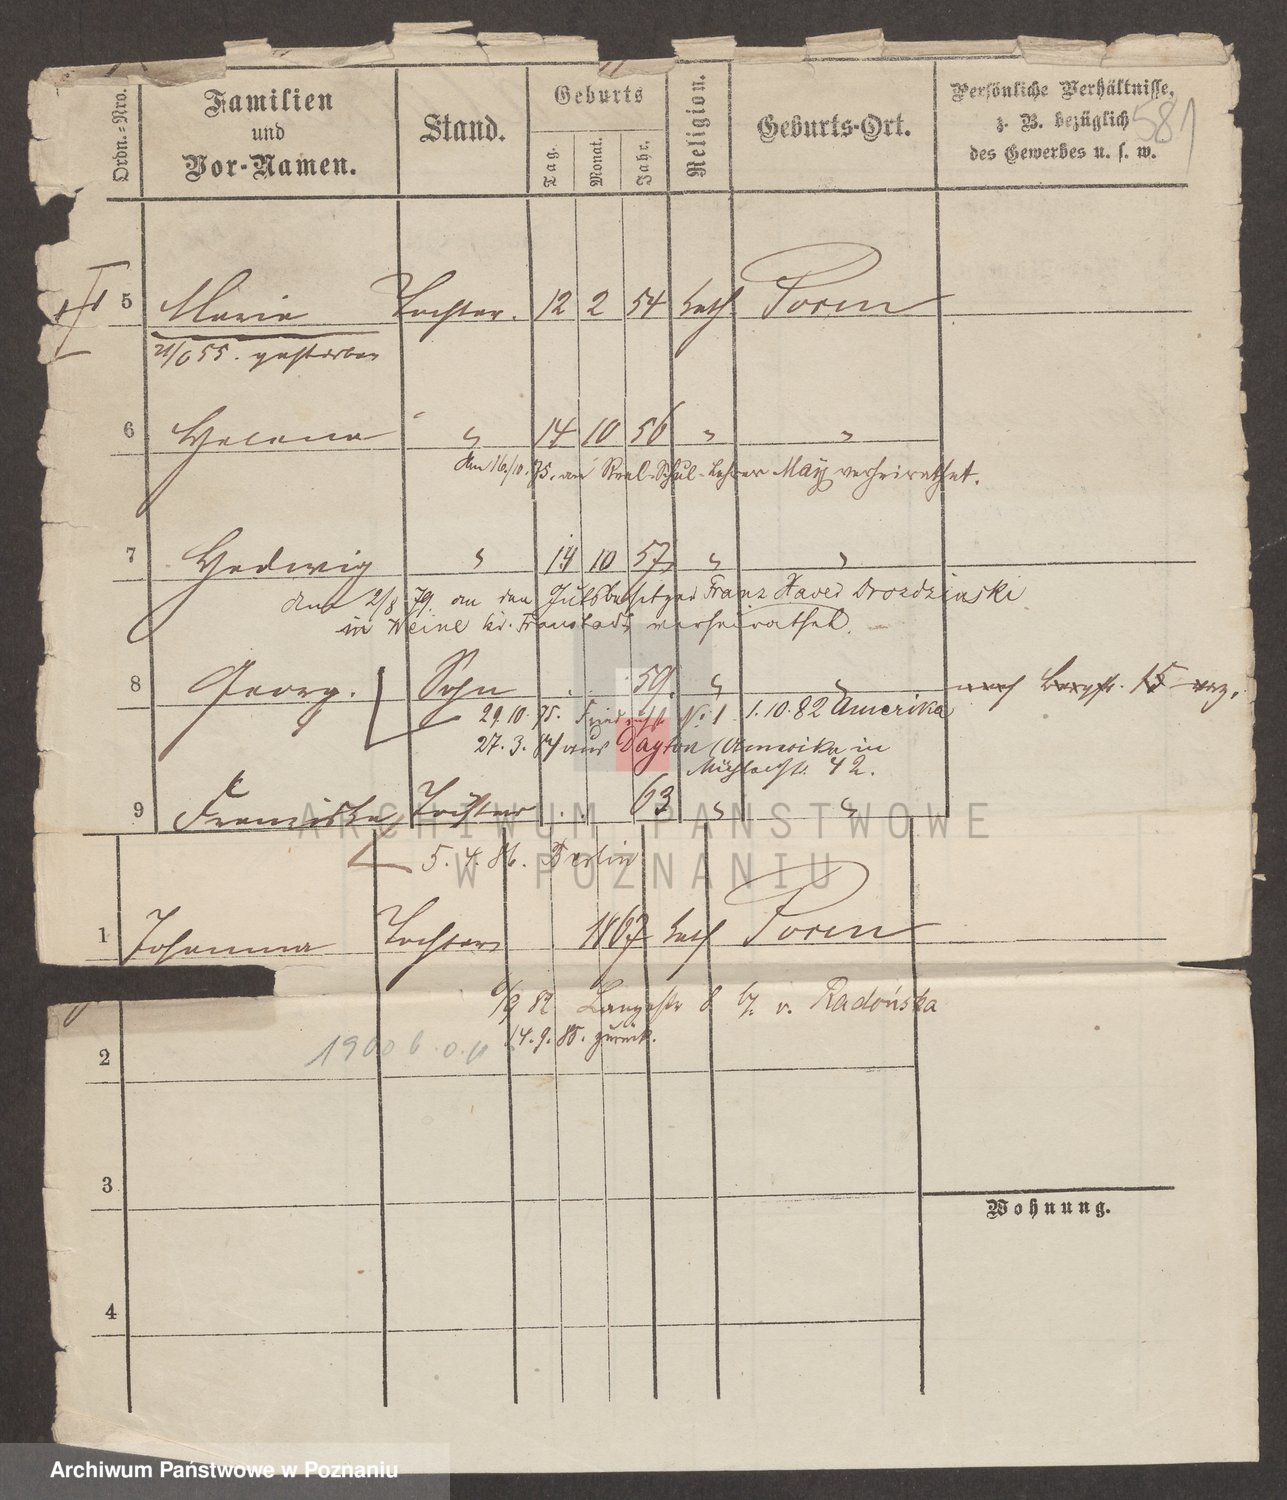 581
Ordn.=Nro.
Familien
und
Vor-Namen.
Stand.
Geburts
Tag.
Monat.
Jahr.
Religion.
Geburts-Ort.
Persönliche Verhältnisse,
z. B. bezüglich
des Gewerbes u. s. w.
5 Marie Tochter. 12 2 54 kath. Posen
55. gestorben
6 Helena " 14 10 56 " "
Am 16/10. 75. an Real-Schul-Lehrer May verheirathet.
7 Hedwig " 14 10 57 " "
Am 2/8 79. an den Gutsbesitzer Franz Xaver Drozdzinski
in Weine kr. Fraustadt, verheirathet.
8 Georg. Sohn . . 59. " " nach Bergstr. 15 verz.
29.10.75. Friedrichst No 1 1.10.82 Amerika
27.3. aus Dayton (Amerika in
Mühlenstr. 42.
9 Franziska Tochter . . 63 " "
5.4.86. Berlin
1 Johanna Tochter 1867 kath Posen
/9 82 Langestr 8 b. v. Radońska
14.9.85. zurück.
2
3
4
Wohnung.
ARCHIWUM PAŃSTWOWE
W POZNANIU
Archiwum Państwowe w Poznaniu